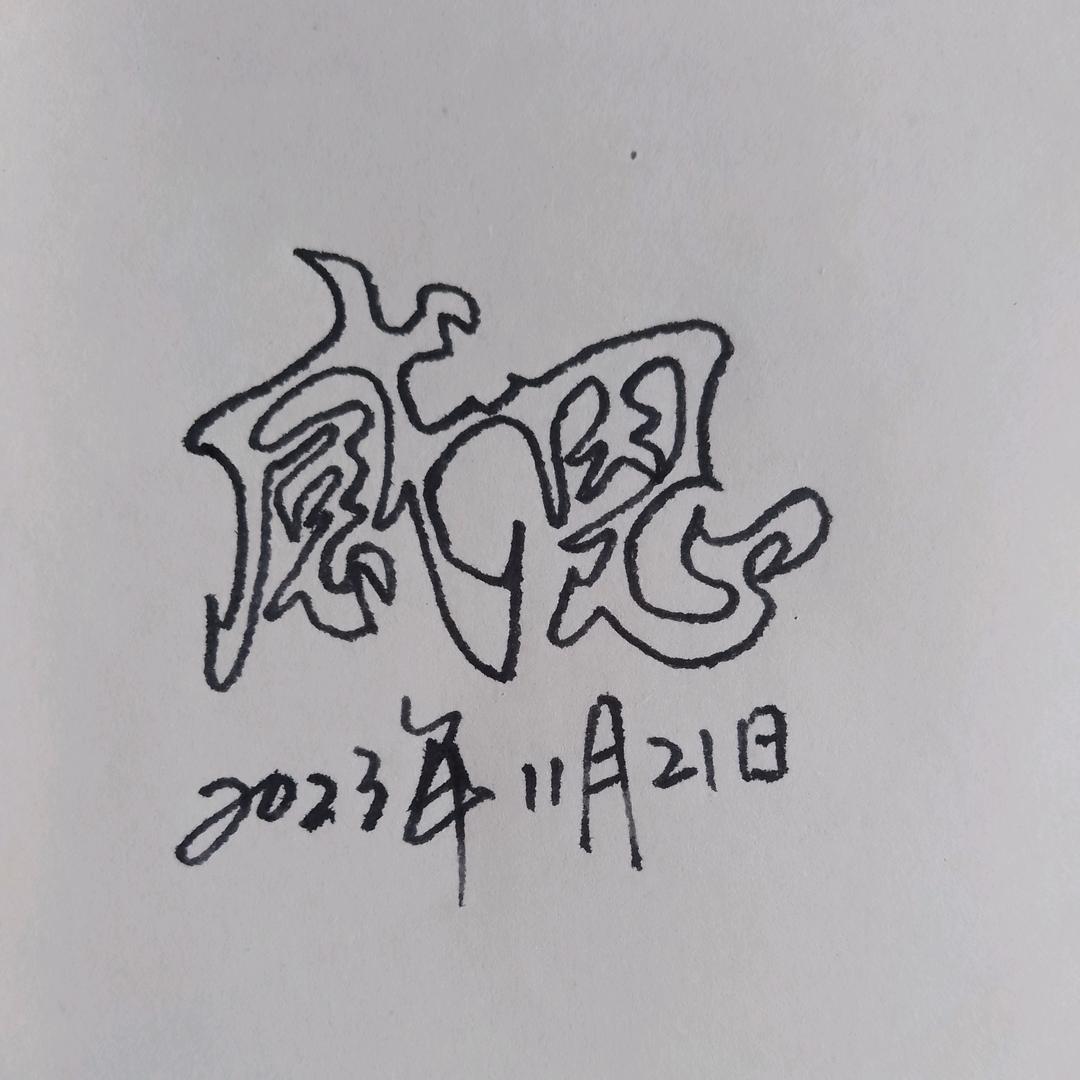 感恩
2023年11月21日